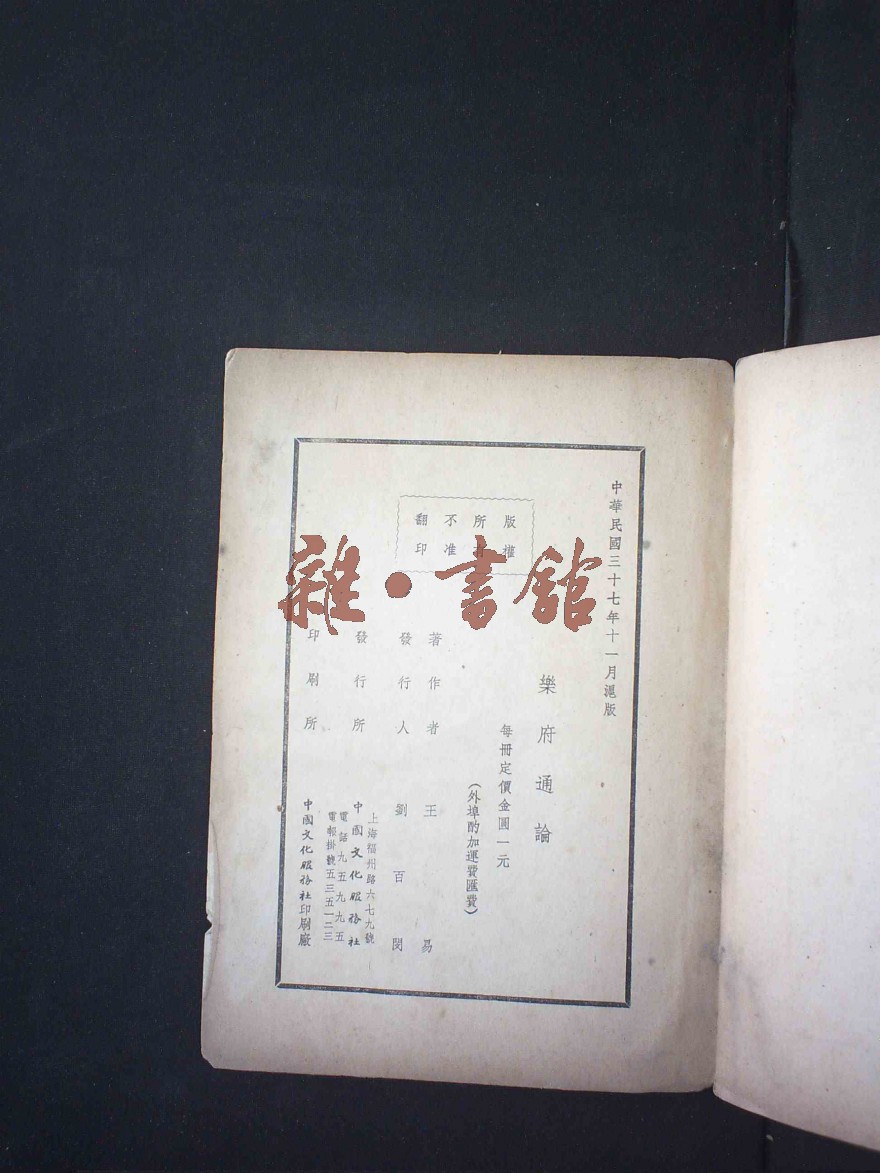 中華民國三十七年十一月滬版
樂府通論
每冊定價金圓一元
(外埠酌加運費匯費)
版權
所有
不准
翻印
著作者 王易
發行人 劉百閔
發行所 中國文化服務社
上海福州路六七九號
電話九五九九五
電報掛號五三五一二三
印刷所 中國文化服務社印刷廠
雜·書館